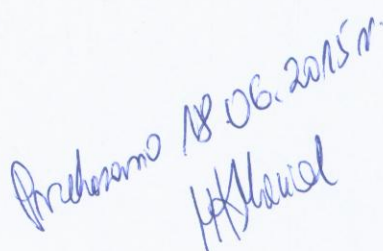 Przekazano 18.06.2015 r.